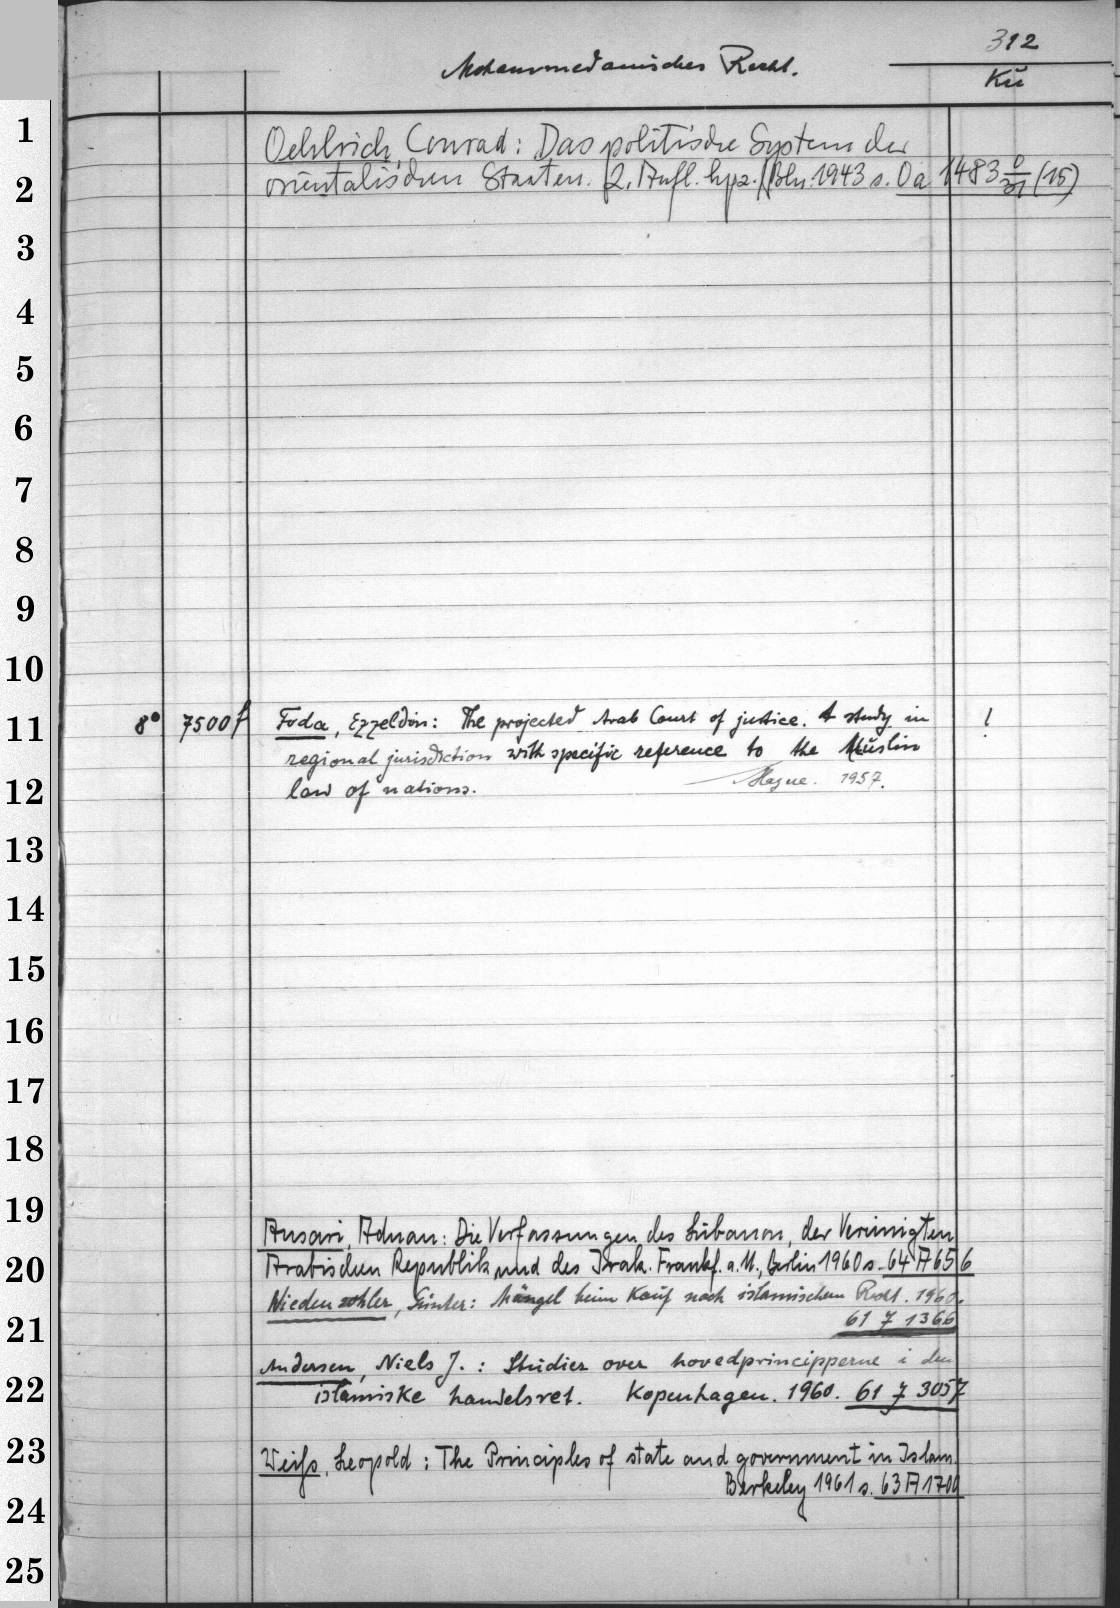 312
Mohammedanisches Recht.
Kü
1
Oehlrich, Conrad: Das politische System der
2
orientalischen Staaten. (2. Aufl. Lpz.)(Bln. 1943 s. Oa 1483 (15)
3
4
5
6
7
8
9
10
11
8° 7500 f Foda, Ezzeldin: The projected Arab Court of justice. A study in !
regional jurisdiction with specific reference to the Muslin
12
law of nations. Hague. 1957.
13
14
15
16
17
18
19
Ansari, Adnan: Die Verfassungen des Libanon, der Vereinigten
20
Arabischen Republik und des Irak. Frankf. a. M., Berlin 1960 s. 64 A 656
Niedenzohler, Günter: Mängel beim Kauf nach islamischem Recht. 1960.
21
61 7 1366
Andersen, Niels J.: Studier over hovedprincipperne i den
22
islamiske handelsret. Kopenhagen. 1960. 61 7 3057
23
Weiß, Leopold: The Principles of state and government in Islam.
Berkeley 1961 s. 63 A 1700
24
25